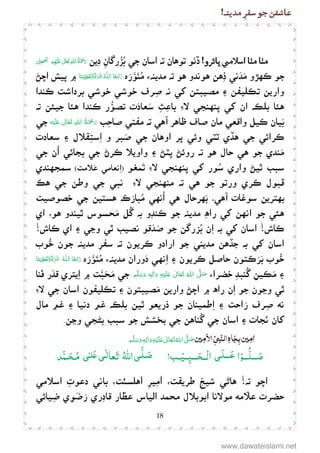 عاشقن جو سفرِ مدینہ!
مٺا مٺا اسلامي ڀائرو! ڏٺو توهان تہ اسان جي بُزُرگانِ دين
جو ڪهڙو مَدَني ذِهن هوندو هو تہ مدينہء مُنَوَّرَه ۾ پيش اچڻ
وارين تڪليفن ۽ مصيبتن کي نہ صِرف خوشي خوشي برداشت ڪندا
هئا بلڪ ان کي پنهنجي لاءِ باعِثِ سَعادَت تصَوُّر ڪندا هئا جيئن تہ
بَيان ڪيل واقعي مان صاف ظاهر آهي تہ مفتي صاحِب جي
ڪرائي جي هڏي ٽٽي وئي پر اوهان جي صَبر و اِستِقلال ۽ سعادت
مَندي جو هي حال هو تہ روئڻ پِٽڻ ۽ واويلا ڪرڻ جي بجائي اُن جي
سبب ٿيڻ واري سُور کي پنهنجي لاءِ تَمغو (انعامي علامت) سمجهندي
قبول ڪري ورتو جو هي تہ منهنجي لاءِ نبي جي وطن جي هڪ
بهترين سوغات آهي، بَهرحال هي اُنهي مُبارَڪ هستين جي خصوصيت
هئي جو انهن کي راهِ مدينہ جو ڪنڊو بہ گُل محسوس ٿيندو هو، اي
ڪاش! اسان کي بہ اِن بُزُرگن جو صَدقو نصيب ٿي وڃي ۽ اي ڪاش!
اسان کي بہ جڏهن مديني جو ارادو ڪريون تہ سفرِ مدينہ جون خُوب
خُوب بَرَڪتون حاصل ڪريون ۽ اِنهي دَوران مدينہء مُنَوَّرَه
۽ مَڪينِ گُنبَدِ خضراء صَلَّی اللہُ تَعَالٰی عَلَیْہِ وَاٰلِہٖ وَسَلَّم جي مَحَبَّت ۾ ايتري قدَر فَنا
ٿي وڃون جو اِن راهہ ۾ اچڻ وارين مُصيبتون ۽ تڪليفون اسان جي لاءِ
نہ صِرف راحت ۽ اِطمينان جو ذريعو ٿين بلڪ غمِ دنيا ۽ غمِ مال
کان نَجات ۽ اسان جي گُناهن جي بخشش جو سبب بڻجي وڃن.
اٰمِین بِجَاہِ النَّبِیِّ الْاَمِین صَلَّی اللہُ تَعَالٰی عَلَیْہِ وَاٰلِہٖ وَسَلَّم
صَلُّوْا عَلَی الْحَبِیْب! صَلَّی اللہُ تَعَالٰی عَلٰی مُحَمَّد
اچو تہ! هاڻي شيخِ طريقت، اميرِ اهلسنّت، باني دعوتِ اسلامي
حضرت علّامہ مولانا ابوبلال محمد الياس عطّار قادِري رَضَوي ضِيائي
18
www.dawateislami.net